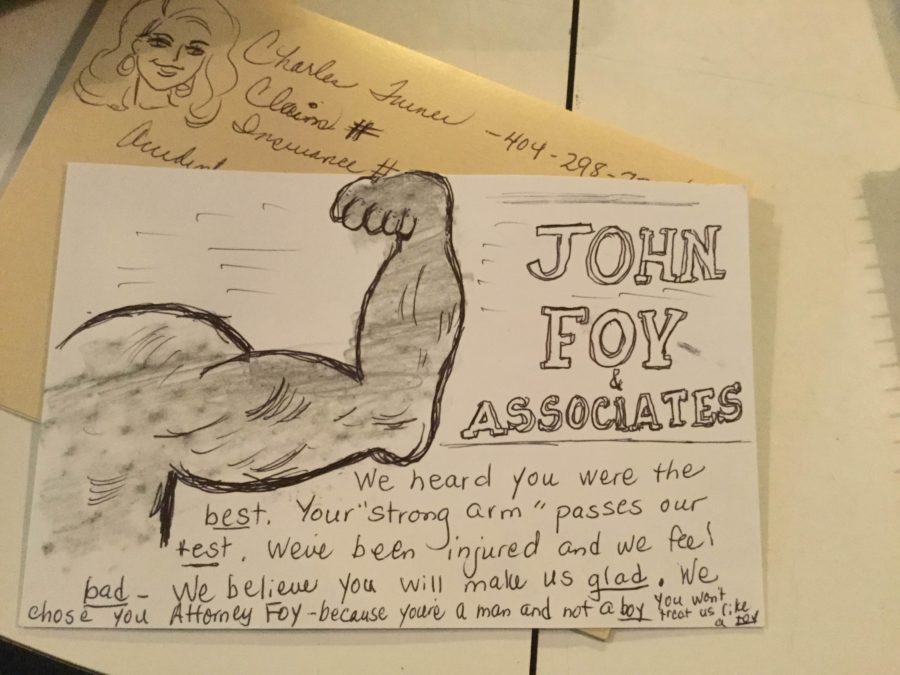 Charles Turner - 404-298-
Claim #
Insurance #
Accident
JOHN
FOY
&
ASSOCIATES
We heard you were the
best. Your "strong arm" passes our
test. Weve been injured and we feel
bad - We believe you will make us glad. We
chose you Attorney FOY - because you're a man and not a boy you won't
treat us like
a toy